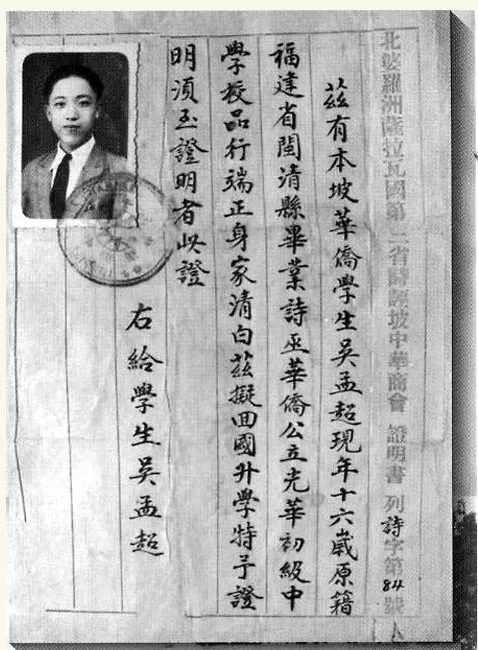 北婆羅洲薩拉瓦國第三省詩誣坡中華商會 證明書 列詩字第84號
茲有本坡華僑學生吳孟超現年十六歲原籍
福建省閩清縣畢業詩巫華僑公立光華初級中
學校品行端正身家清白茲擬回國升學特予證
明須至證明者此證
右給學生吳孟超